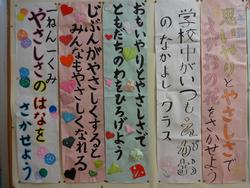 思いやりとやさしさで
の花をさかせよう
学校中がいつも
のなかよしクラス
おもいやりとやさしさで
ともだちのわをひろげよう
じぶんがやさしくすると
みんなもやさしくなれる
一ねん一くみ
やさしさのはなを
さかせよう